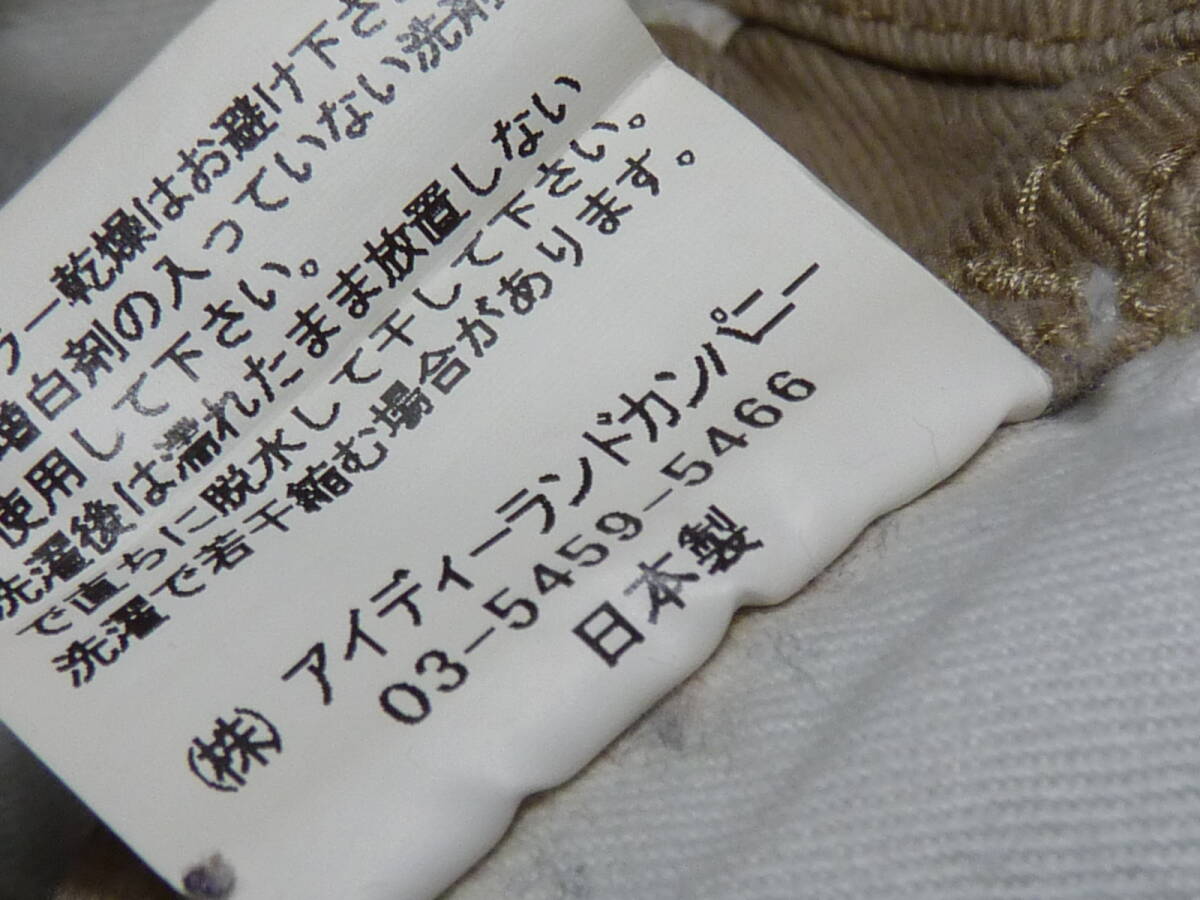 ー乾燥はお避け下さ
増白剤の入っていない洗剤
使用して下さい。
洗濯後は濡れたまま放置しない
で直ちに脱水して干して下さい。
洗濯で若干縮む場合があります。
(株) アイディーランドカンパニー
03-5459-5466
日本製